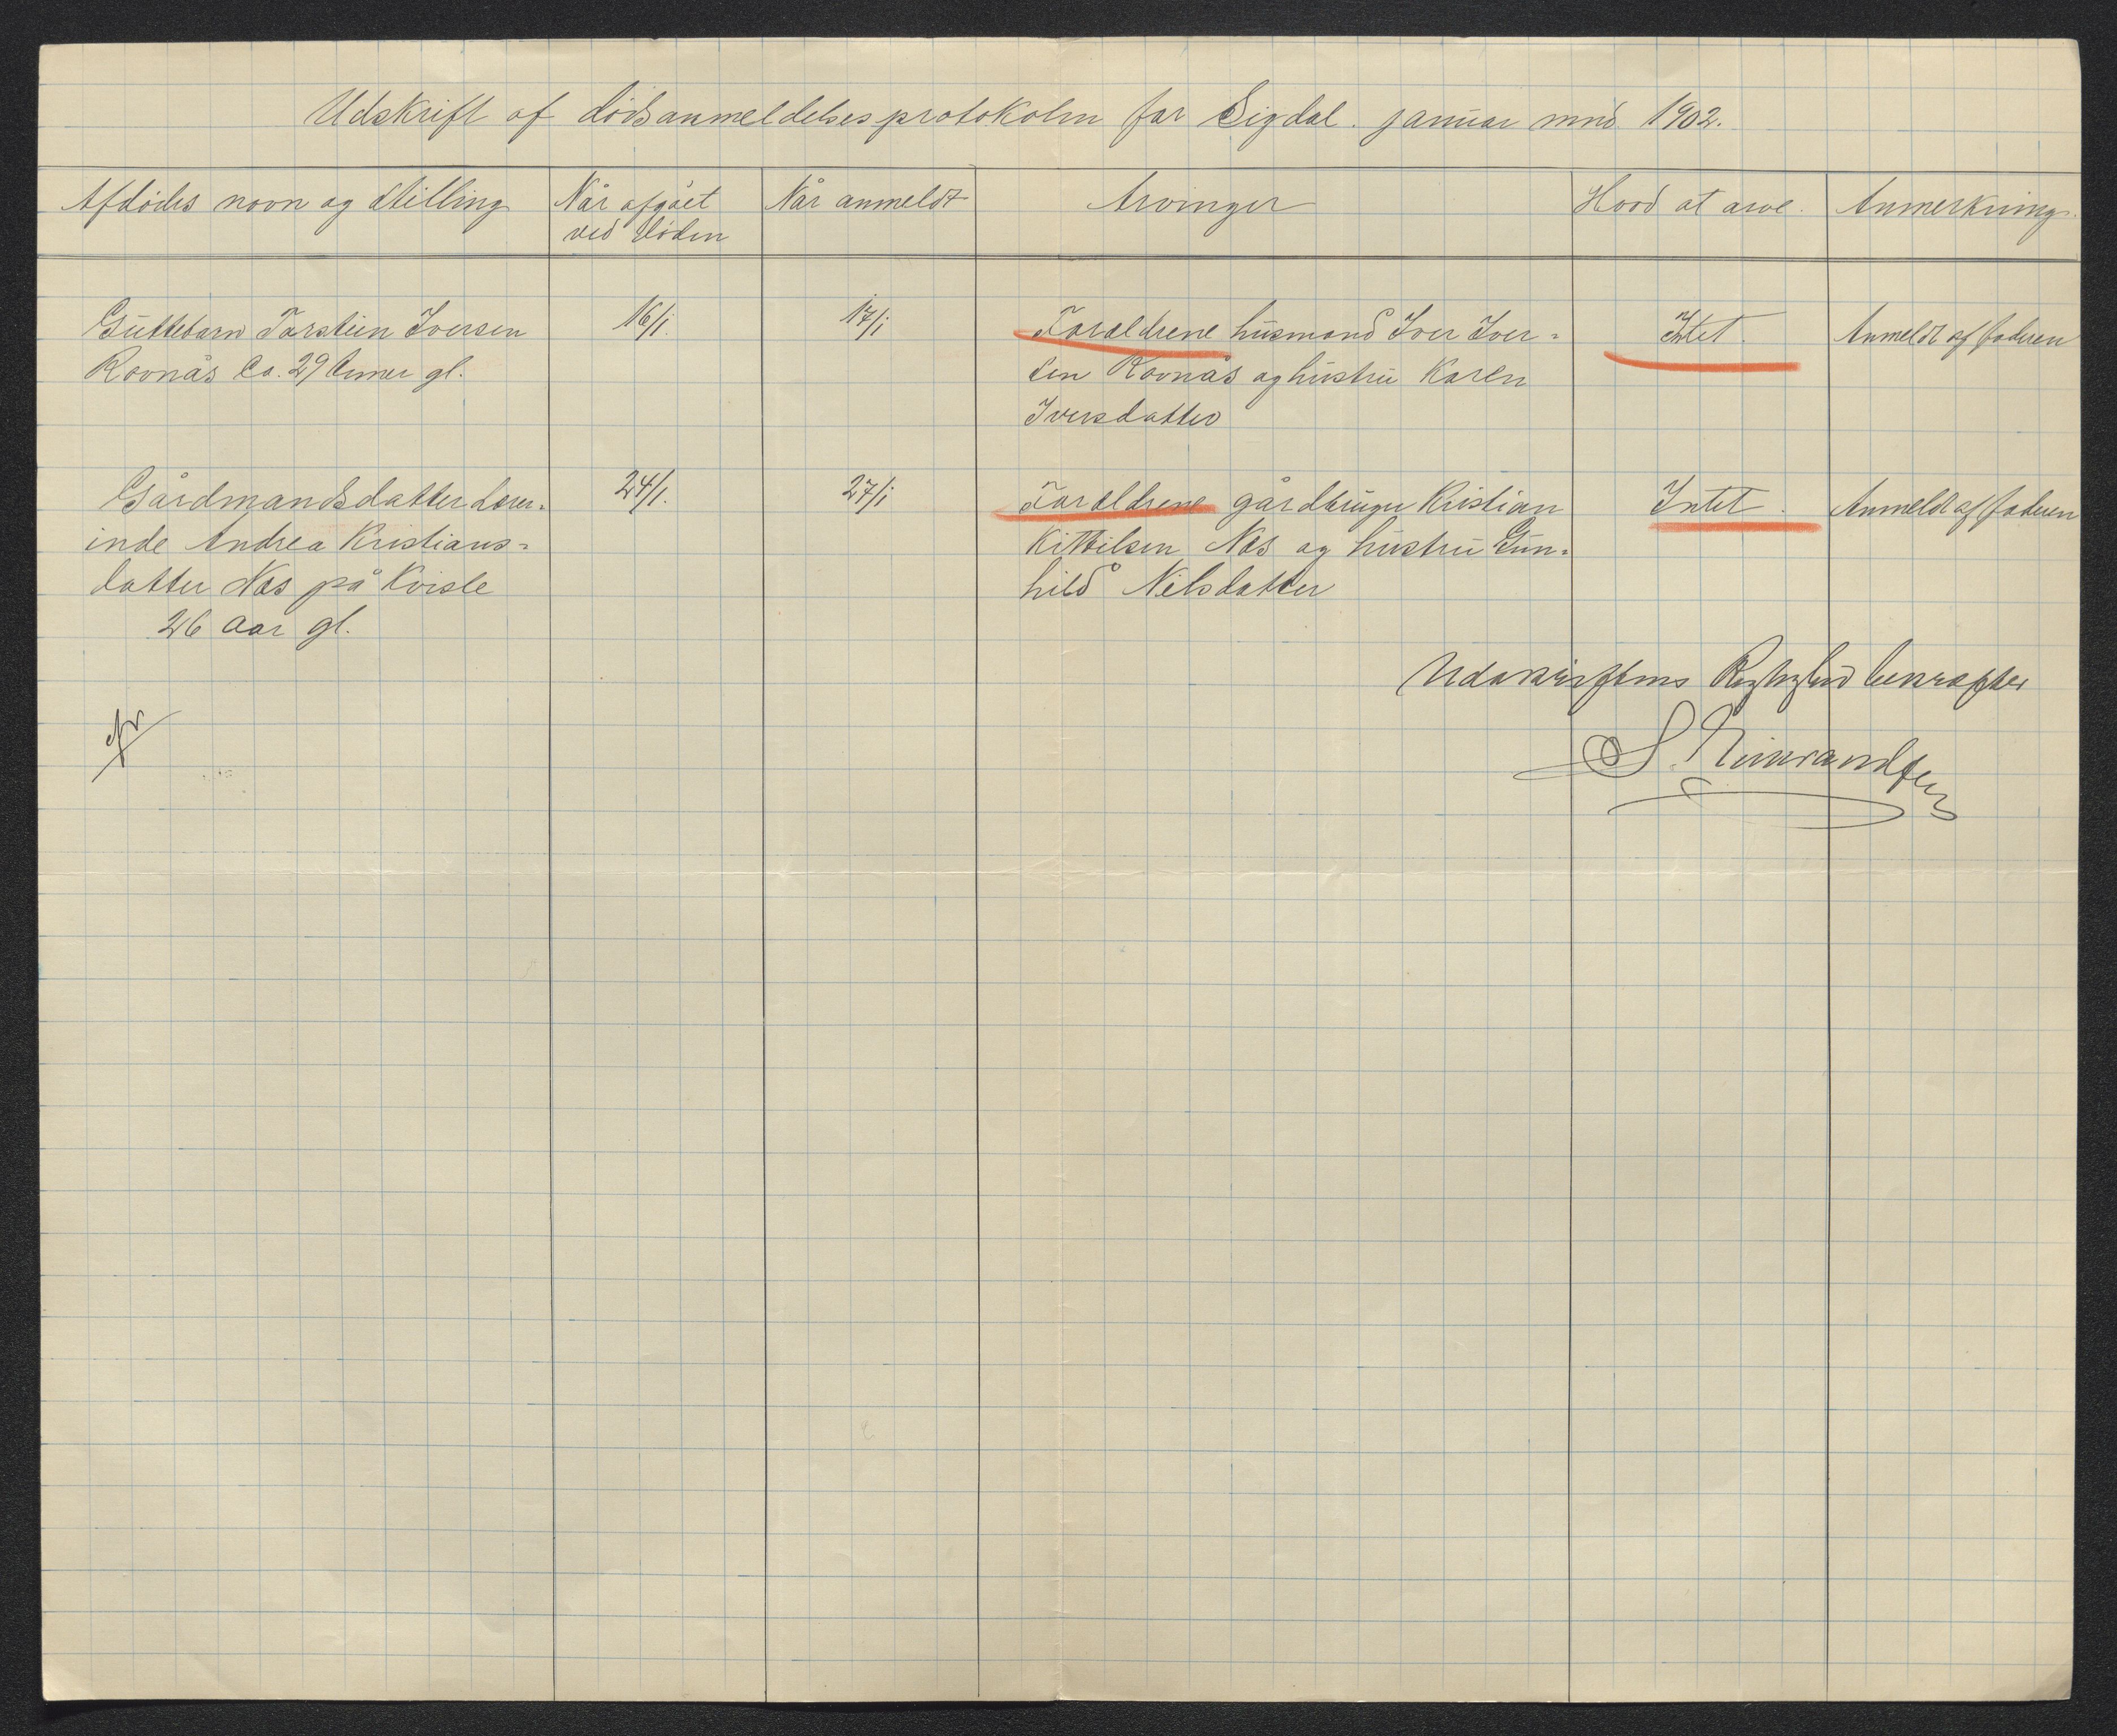 Udskrift af dödsanmeldelsesprotokolen for Sigdal januar mnd 1902.
Afdödes navn og stilling
Når afgået
ved döden
Når anmeldt
Arvinger
Hvad at arve.
Anmerkning.
Guttebarn Torstein Iversen
Rovnås Ca. 29 timer gl.
16/1.
17/1
Foraldrene husmand Iver Iver-
sen Rovnås og hustru Karen
Iversdatter
Intet.
Anmeldt af faderen
Gårdmandsdatter Larer-
inde Andrea Kristians-
datter Nas på Kvisle
26 aar gl.
24/1.
27/1
Foraldrene gårdbruger Kristian
Kittilsen Nas og hustru Gun-
hild Nilsdatter
Intet.
Anmeldt af faderen
Udskriftens Rigtighed bekræfter